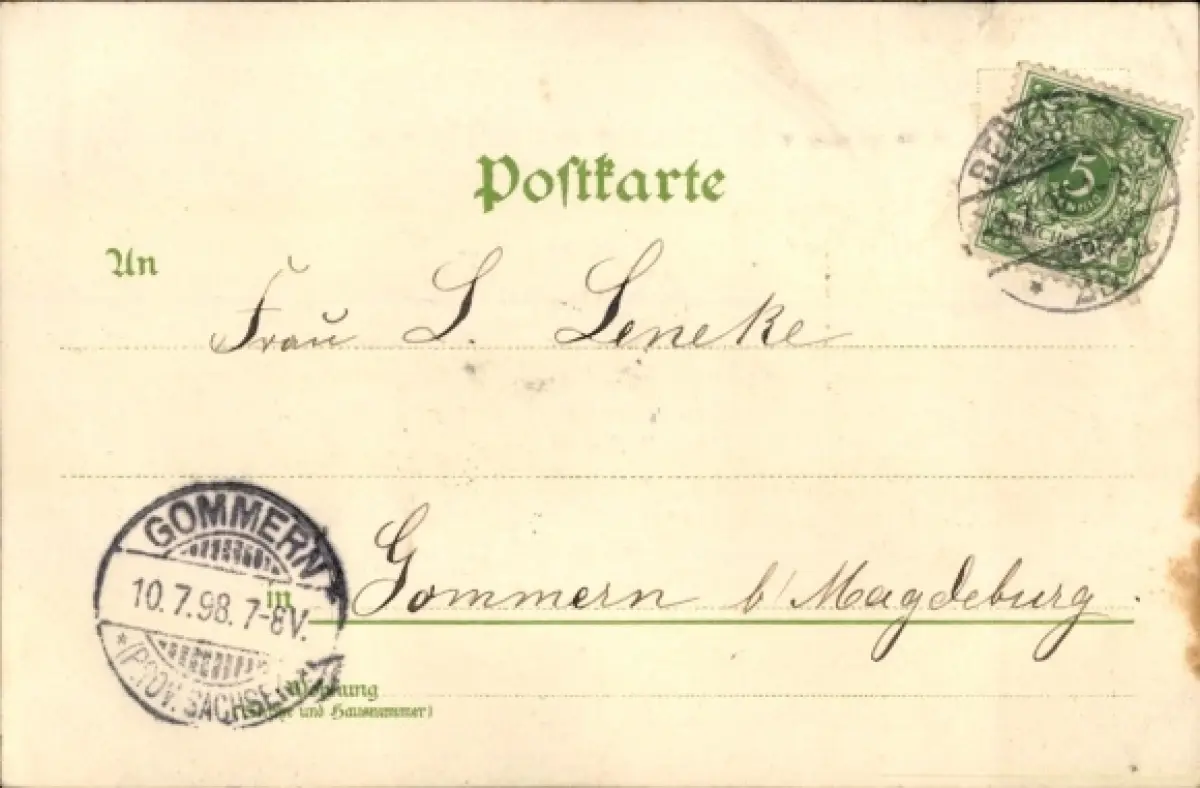 Postkarte
5
An
Frau L. Leneke
GOMMERN
10.7.98. 7-8V.
* (PROV. SACHSEN) *
in Gommern b/ Magdeburg.
Wohnung
(Straße und Hausnummer)